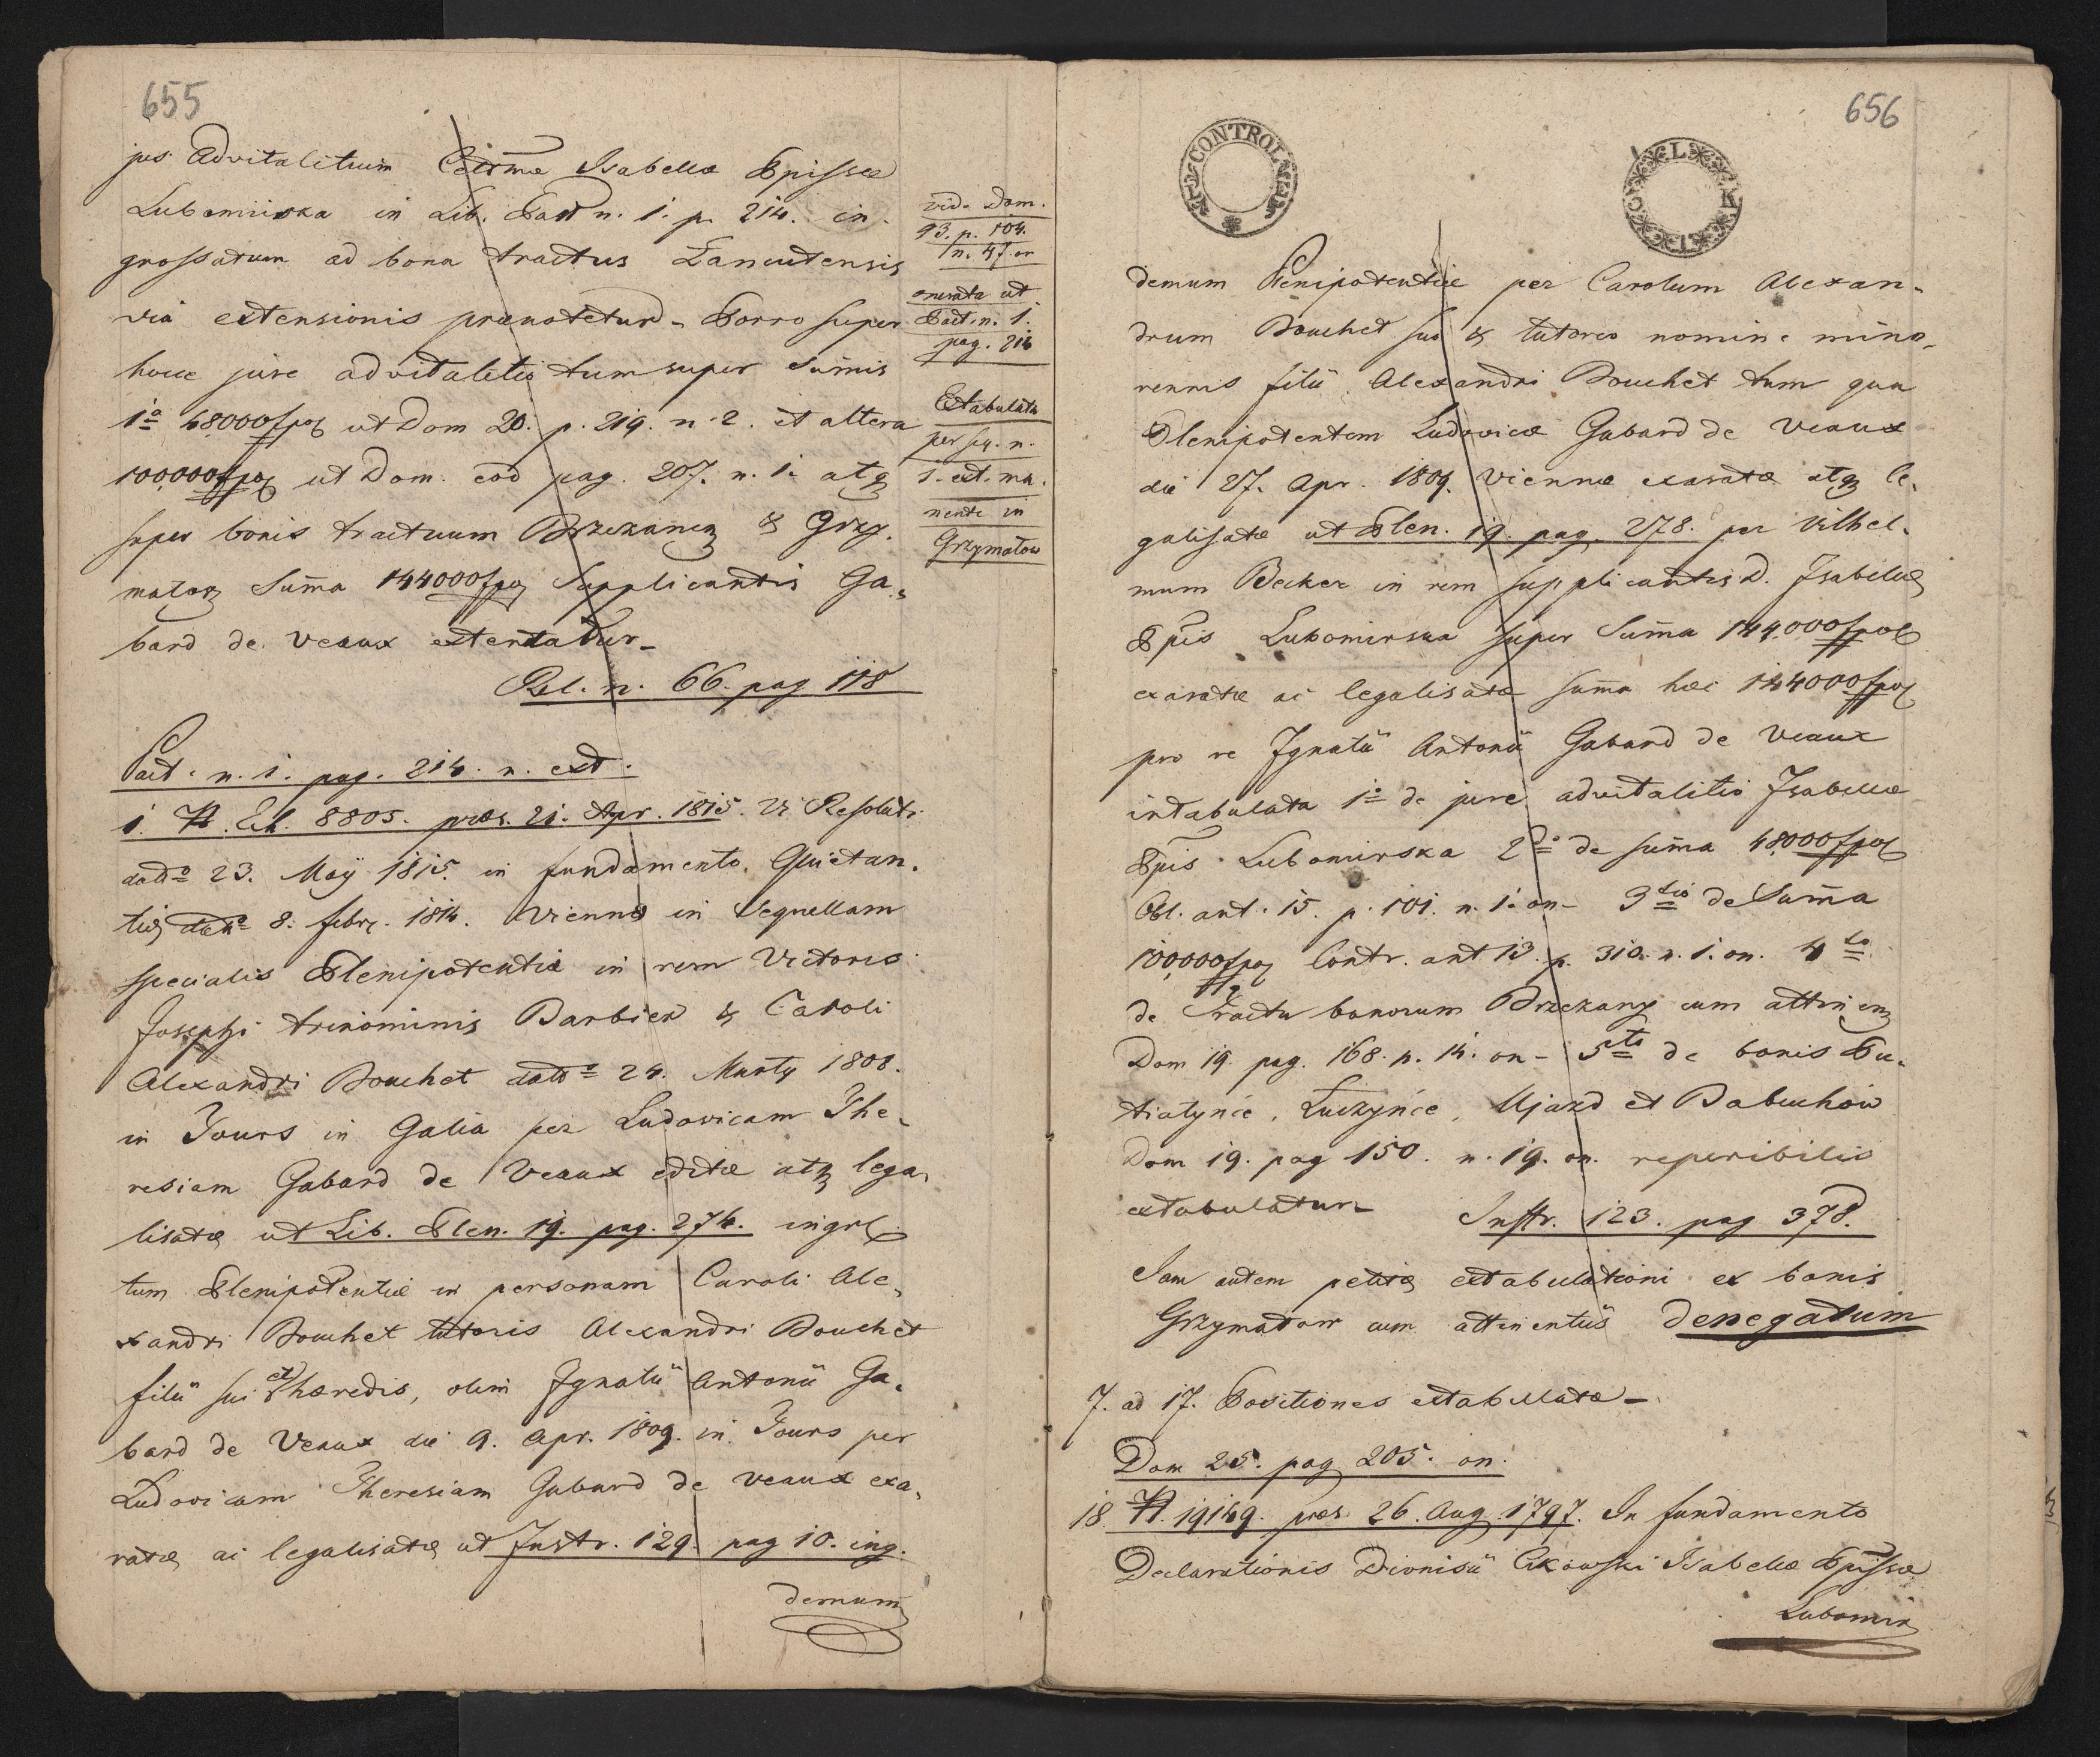 655
jus Advitalitium Celsmae Isabellae Ppissae
Lubomirska in Lib. Pact n. 1. p. 214. in
grossatum ad bona tractus Łancutensis
via extensionis praenotetur – Porro super
hocce jure advitalitio tum super Sumis
1o 48000 fpol ut Dom 20. p. 219. n. 2. et altera
100,000 fpol ut Dom. eod pag. 207. n. 1. atq
super bonis tractuum Brzezaney & Grzy.
matow Suma 144000 fpol Supplicantis Ga-
bard de Veaux extendatur –
Rel. n. 66. pag 118
vid. Dom.
93. p. 104.
n. 47. on
onerata ut
Pact. n. 1.
pag. 214
Extabulata
per sq. n.
1. ext. ma.
nente in
Grzymatow
Pact. n. 1. pag. 214. n. ext.
1. N. Exh. 8805. praes. 21. Apr. 1815. Vi Resoluti.
ddto 23. May 1815. in fundamento Quietan.
tiae ddto 8. febr. 1814. Viennae in sequellam
specialis Plenipotentiae in rem Victoris
Josephi trinominis Barbier & Caroli
Alexandri Bouchet ddto 24. Marty 1808.
in Tours in Galia per Ludovicam The-
resiam Gabard de Veaux editae atq lega-
lisatae ut Lib. Plen. 19. pag. 274. ingrs
tum Plenipotentiae in personam Caroli Ale-
xandri Bouchet tutoris Alexandri Bouchet
filii sui et haeredis, olim Ignatii Antonii Ga-
bard de Veaux die 9. Apr. 1809. in Tours per
Ludovicam Theresiam Gabard de Veaux exa-
ratae ac legalisatae ut Instr. 129. pag 10. ing.
demum
656
CONTROL
demum Plenipotentiae per Carolum Alexan-
drum Bouchet suo & tutorio nomine mino-
rennis filii Alexandri Bouchet tum qua
Plenipotentem Ludovicae Gabard de Veaux
die 27. Apr. 1809. Viennae exaratae atq le-
galisatae ut Plen. 19. pag. 278. per Vilhel-
mum Becker in rem supplicantis D. Isabellae
Ppis Lubomirska super Suma 144.000 fpol
exaratae ac legalisatae suma haec 144000 fpol
pro re Ignatii Antonii Gabard de Veaux
intabulata 1o de jure advitalitio Isabellae
Ppis Lubomirska 2do de suma 48,000 fpol
Obl. ant. 15. p. 101. n. 1. on – 3tio de Suma
100,000 fpol Contr. ant 13. p. 310. n. 1. on. 4to
de Tractu bonorum Brzezany cum attinen
Dom 19. pag. 168. n. 14. on – 5to de bonis Pu-
tiatynce, Łuczynce, Ujazd et Babuchow
Dom 19. pag 150. n. 19. on. reperibilis
extabulatur –
Instr. 123. pag 378.
Iam autem petitae extabulationi ex bonis
Grzymatow cum attinentiis denegatum
7. ad 17. Positiones extabulatae –
Dom 25. pag 205. on.
18. N. 19149. praes 26. Aug. 1797. In fundamento
Declarationis Dionisii Cikowski Isabellae Ppissae
Lubomir